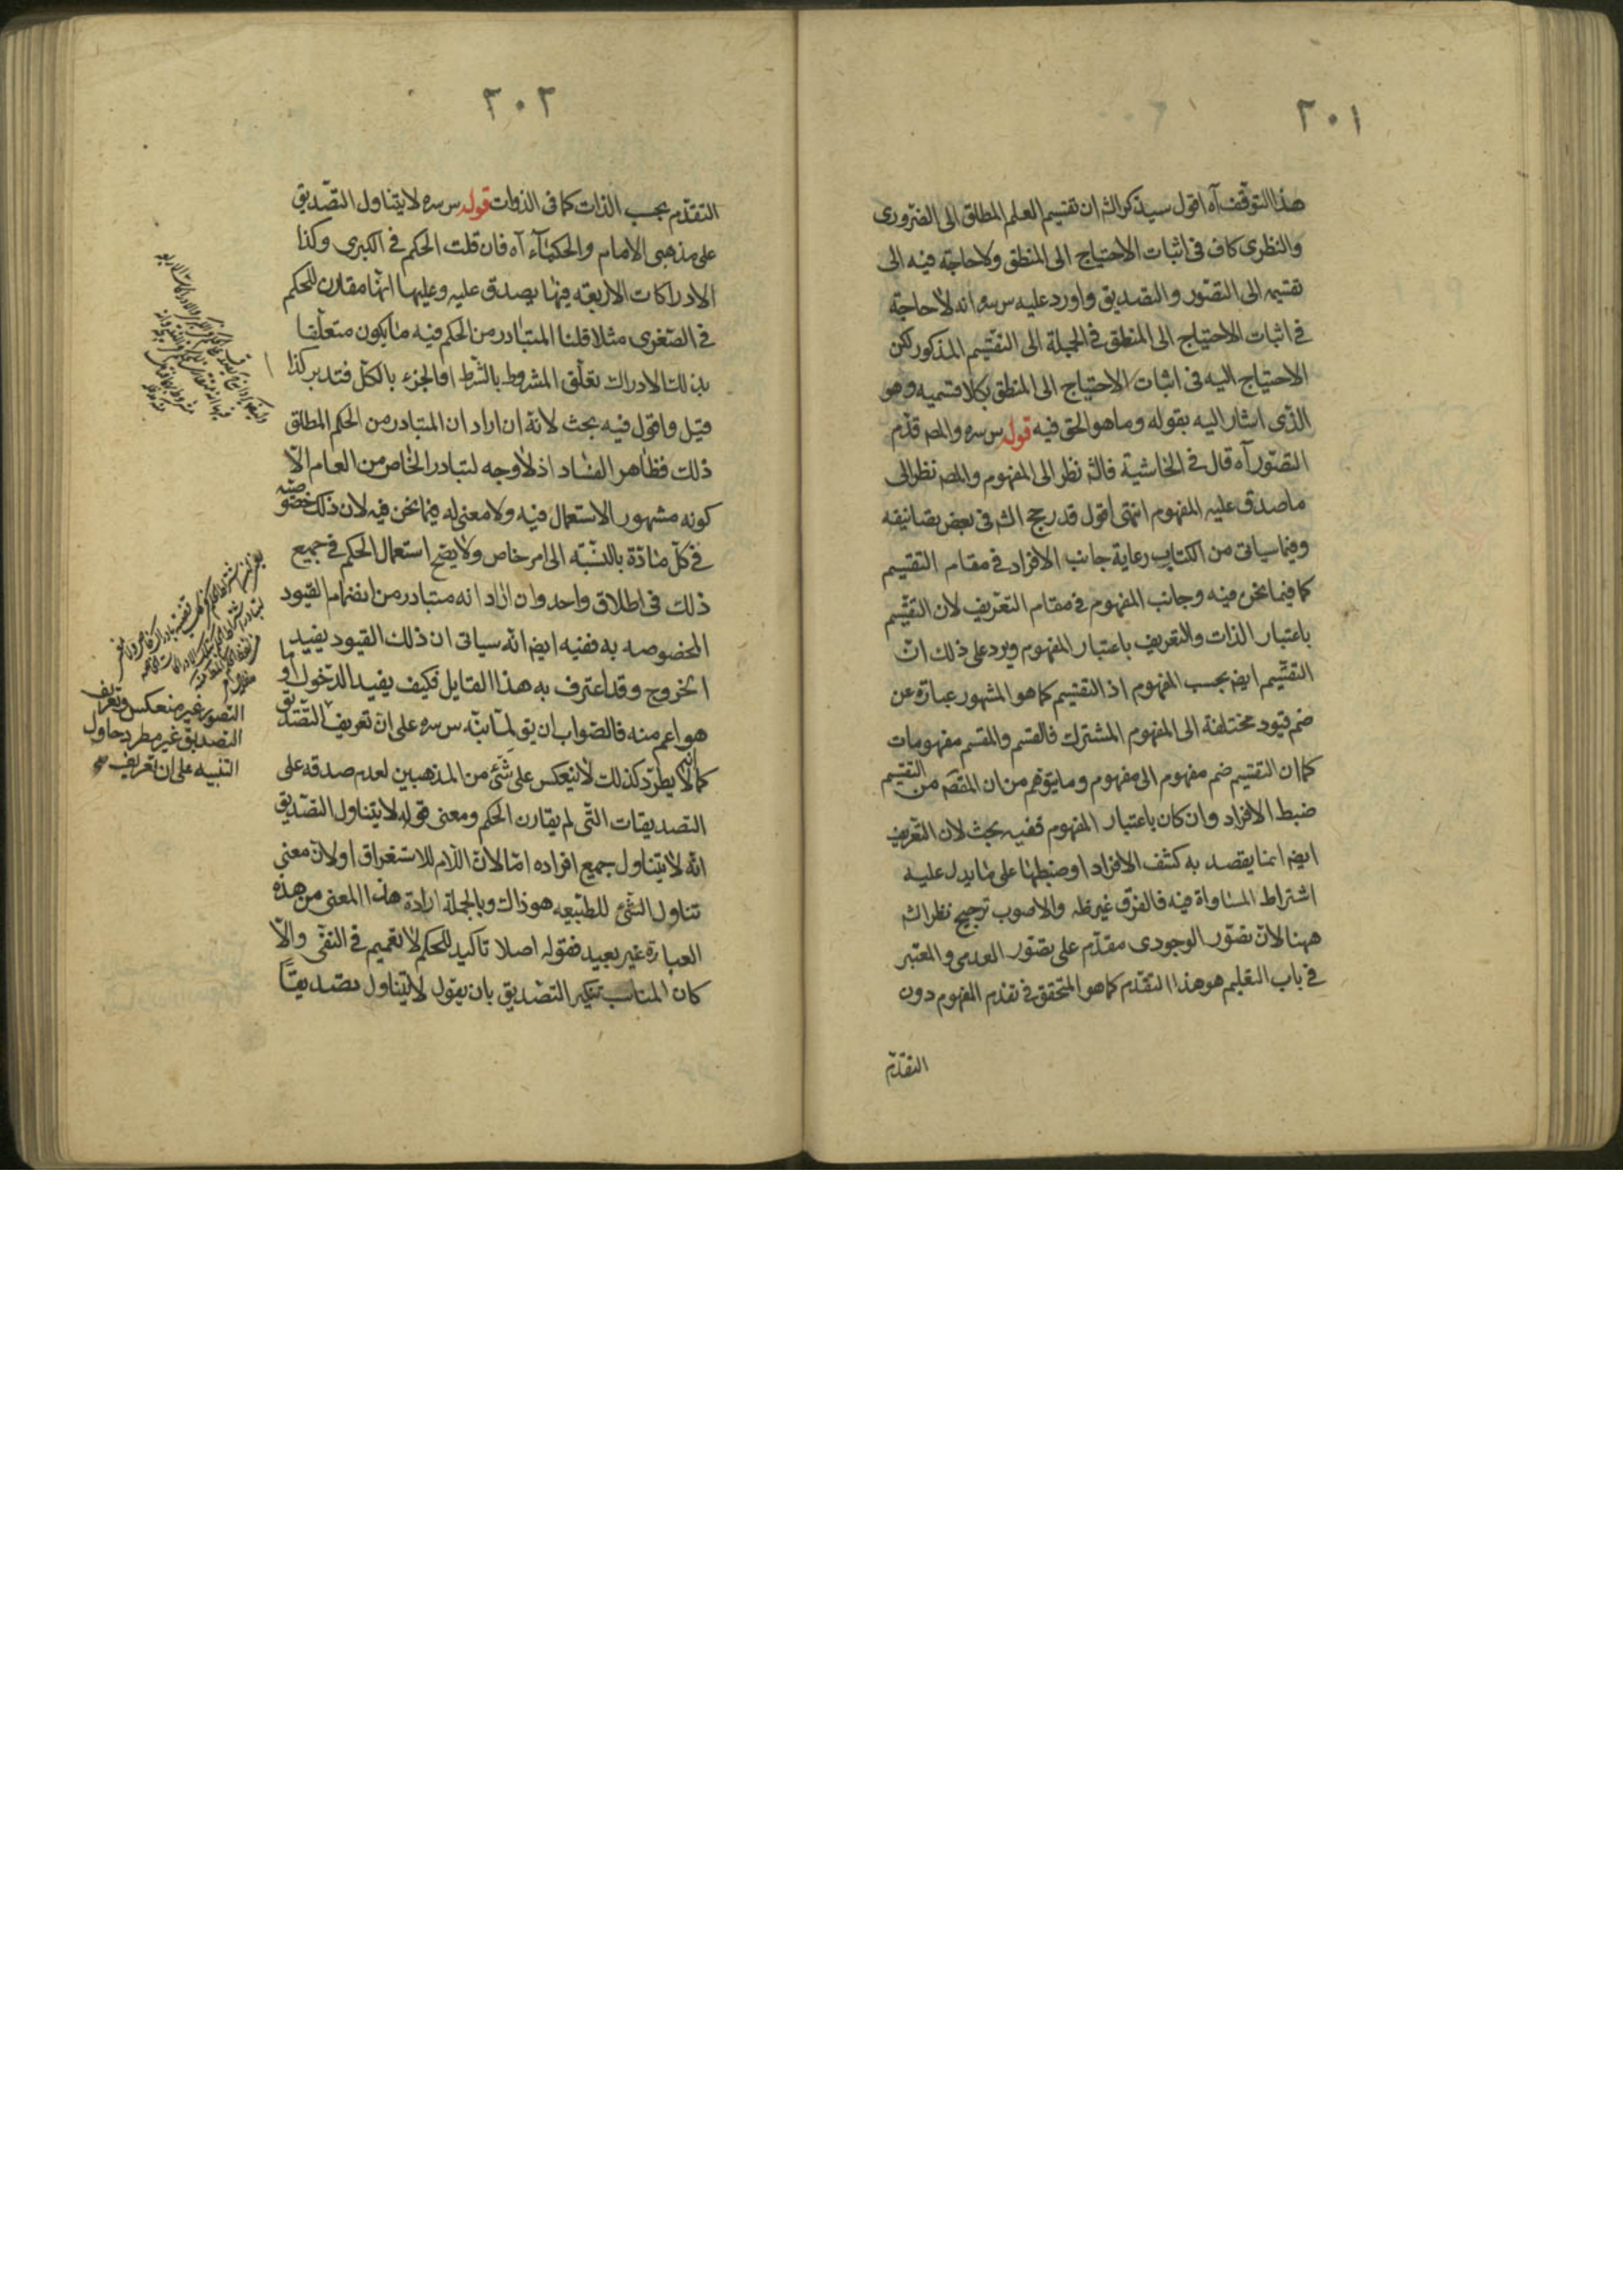 ٢٠١
هذا التوقف آه اقول سيذكر الش ان تقسيم العلم المطلق الى الضرورى
والنظرى كاف فى اثبات الاحتياج الى المنطق ولا حاجة فيه الى
تقسيمه الى التصور والتصديق واورد عليه س سره انه لا حاجة
فى اثبات الاحتياج الى المنطق فى الجملة الى التقسيم المذكور لكن
الاحتياج اليه فى اثبات الاحتياج الى المنطق بكلا قسميه وهو
الذى اشار اليه بقوله وما هو الحق فيه قوله س سره والمص قدم
التصور آه قال فى الحاشية فالش نظر الى المفهوم والمص نظر الى
ما صدق عليه المفهوم انتهى اقول قد رجح الش فى بعض تصانيفه
وفيما سياتى من الكتاب رعاية جانب الافراد فى مقام التقسيم
كما فيما نحن فيه وجانب المفهوم فى مقام التعريف لان التقسيم
باعتبار الذات والتعريف باعتبار المفهوم ويرد على ذلك ان
التقسيم ايض بحسب المفهوم اذ التقسيم كما هو المشهور عبارة عن
ضم قيود مختلفة الى المفهوم المشترك فالقسم والمقسم مفهومات
كما ان التقسيم ضم مفهوم الى مفهوم وما يتوهم من ان المقصد من التقسيم
ضبط الافراد وان كان باعتبار المفهوم ففيه بحث لان التعريف
ايض انما يقصد به كشف الافراد او ضبطها على ما يدل عليه
اشتراط المساواة فيه فالفرق غير ظ والاصوب ترجيح نظر الش
ههنا لان تصور الوجودى مقدم على تصور العدمى والمعتبر
فى باب التعليم هو هذا التقدم كما هو المتحقق فى تقدم المفهوم دون
التقدم
٢٠٢
التقدم بحسب الذات كما فى الذوات قوله س سره لا يتناول التصديق
على مذهبى الامام والحكماء آه فان قلت الحكم فى الكبرى وكذا
الادراكات الاربعة فيها يصدق عليه وعليها انها مقارن للحكم
فى الصغرى مثلا قلنا المتبادر من الحكم فيه ما يكون متعلقا
بذلك الادراك تعلق المشروط بالشرط او الجزء بالكل فتدبر كذا
قيل واقول فيه بحث لانه ان اراد ان المتبادر من الحكم المطلق
ذلك فظاهر الفساد اذ لا وجه لتبادر الخاص من العام الا
كونه مشهور الاستعمال فيه ولا معنى له فيما نحن فيه لان ذلك خصوصية
فى كل مادة بالنسبة الى امر خاص ولا يصح استعمال الحكم فى جميع
ذلك فى اطلاق واحد وان اراد انه متبادر من انضمام القيود
المخصوصه به ففيه ايض انه سياتى ان ذلك القيود يفيد
الخروج وقد اعترف به هذا القايل فكيف يفيد الدخول او ما
هو اعم منه فالصواب ان يق لما نبه س سره على ان تعريف التصديق
كما انه لا يطرد كذلك لا ينعكس على شئ من المذهبين لعدم صدقه على
التصديقات التى لم يقارن الحكم ومعنى قوله لا يتناول التصديق
انه لا يتناول جميع افراده اما لان اللام للاستغراق او لان معنى
تناول الشئ للطبيعه هو ذاك وبالجملة ارادة هذا المعنى من هذه
العبارة غير بعيد فقوله اصلا تاكيد للحكم لا تعميم فى النفى والا
كان المناسب تنكير التصديق بان يقول لا يتناول تصديقا
التصور غير منعكس وتعريف
التصديق غير مطرد حاول
التنبيه على ان تعريف